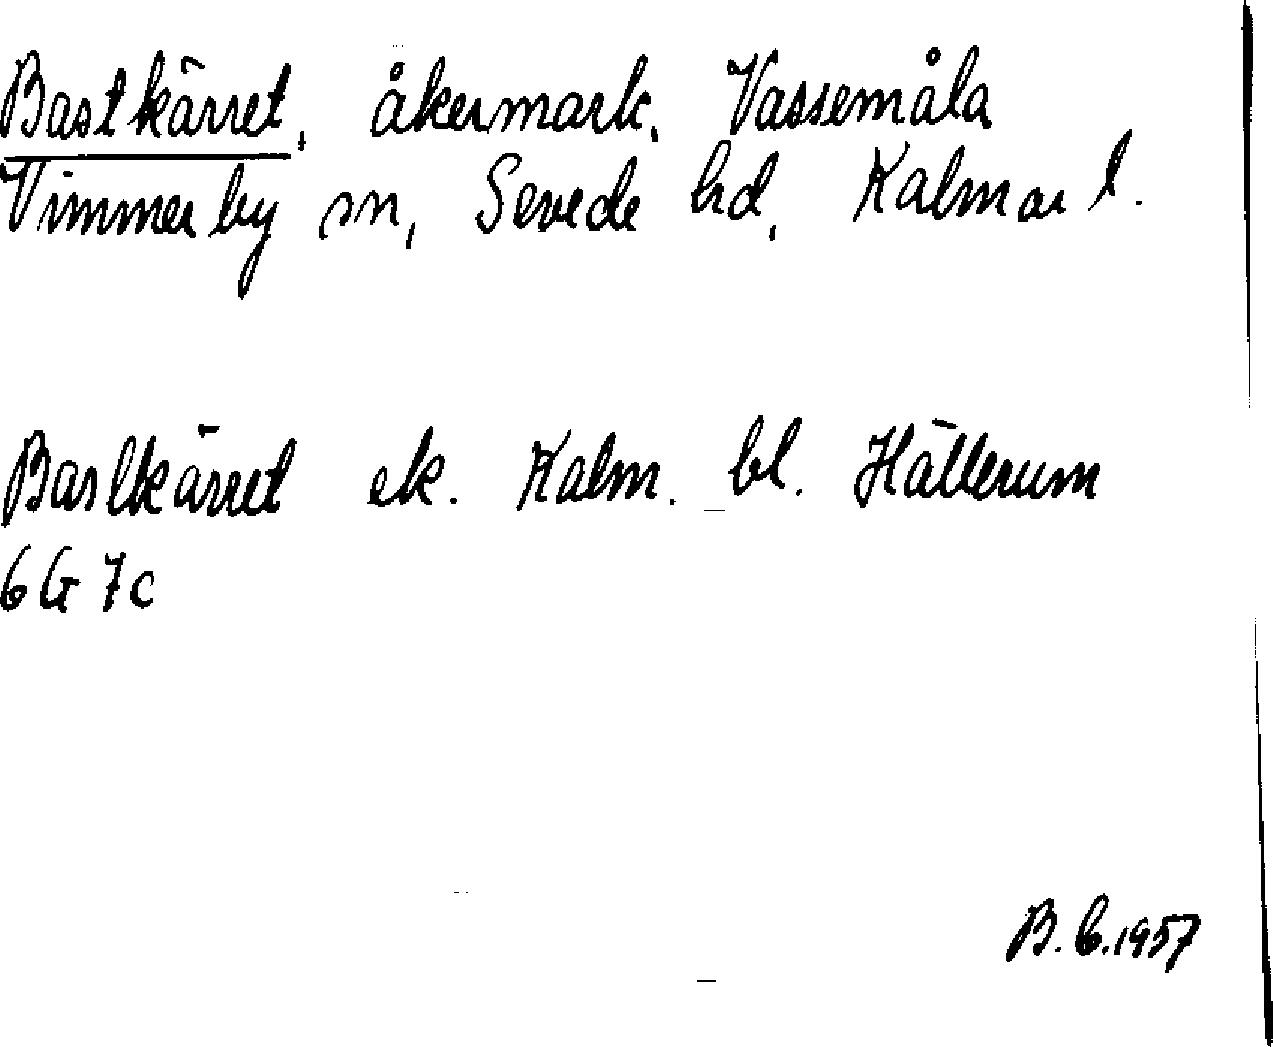 Bastkärret, åkermark, Vassemåla
Vimmerby sn, Sevede hd, Kalmar l.
Bastkärret ek. Kalm. bl. Hällerum
6G 7c
B.C.1957